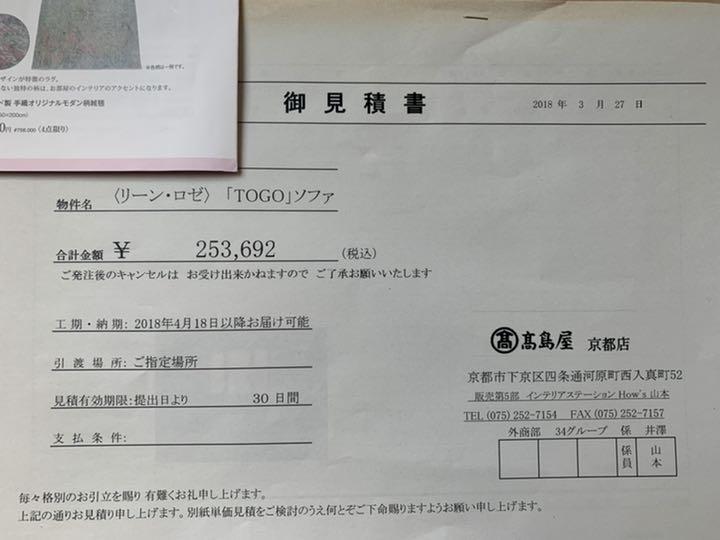 ※色柄は一例です。
ザインが特徴のラグ。
ない独特の柄は、お部屋のインテリアのアクセントになります。
ド製 手織オリジナルモダン柄絨毯
50×200cm)
0円 ¥756,000 (4点限り)
御見積書
2018 年 3 月 27 日
物件名 〈リーン・ロゼ〉「TOGO」ソファ
合計金額 ¥ 253,692 (税込)
ご発注後のキャンセルは お受け出来かねますので ご了承お願いいたします
工期・納期: 2018年4月18日以降お届け可能
引渡場所: ご指定場所
見積有効期限: 提出日より 30 日間
支払条件:
髙 髙島屋 京都店
京都市下京区四条通河原町西入真町52
販売第5部 インテリアステーション How's 山本
TEL (075) 252-7154 FAX (075) 252-7157
外商部 34グループ 係 井澤
係員 山本
毎々格別のお引立を賜り 有難くお礼申し上げます。
上記の通りお見積り申し上げます。別紙単価見積をご検討のうえ何とぞご下命賜りますようお願い申し上げます。